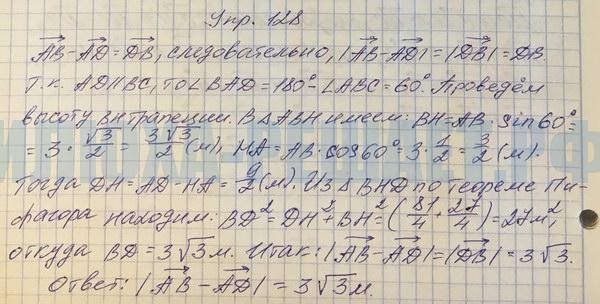 Упр. 128
AB - AD = DB, следовательно, |AB - AD| = |DB| = DB.
Т.к. AD || BC, то ∠BAD = 180° - ∠ABC = 60°. Проведём
высоту BH трапеции. В ΔABH имеем: BH = AB · sin60° =
= 3 · √3/2 = 3√3/2 (м), HA = AB · cos60° = 3 · 1/2 = 3/2 (м).
Тогда DH = AD - HA = 9/2 (м). Из Δ BHD по теореме Пи-
фагора находим: BD² = DH² + BH² = (81/4 + 27/4) = 27м²,
откуда BD = 3√3 м. Итак: |AB - AD| = |DB| = 3√3.
Ответ: |AB - AD| = 3√3 м.